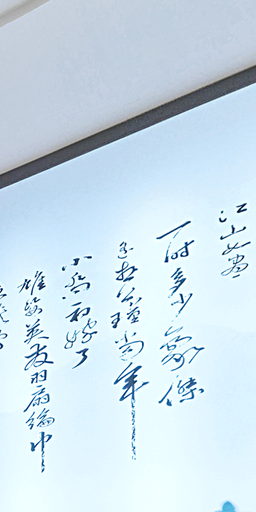 江山如畫
一时多少豪傑
遥想公瑾當年
小喬初嫁了
雄姿英发羽扇綸巾